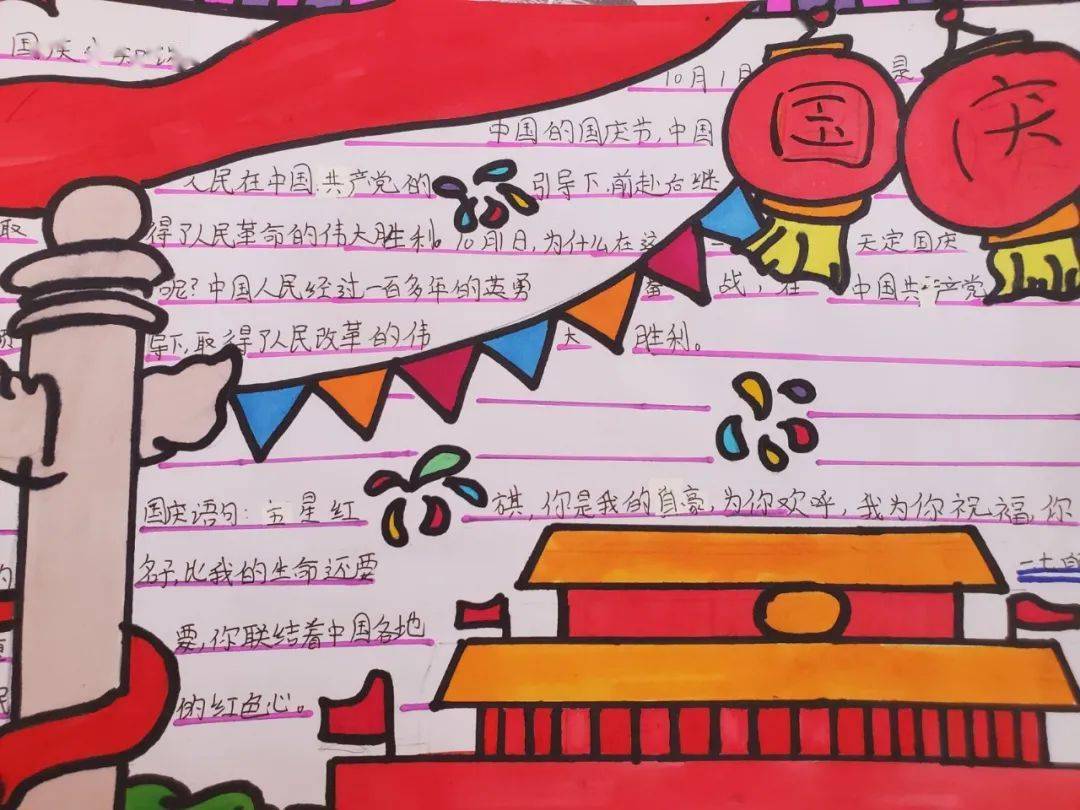 国庆小知识
10月1日是
国庆
中国的国庆节,中国
人民在中国共产党的引导下,前赴后继
取得了人民革命的伟大胜利。10月1日,为什么在这一天定国庆
呢?中国人民经过一百多年的英勇奋战,在中国共产党
导下,取得了人民改革的伟大胜利。
国庆语句:五星红旗,你是我的自豪,为你欢呼,我为你祝福,你
的名子,比我的生命还要
要,你联结着中国各地
民的红色心。